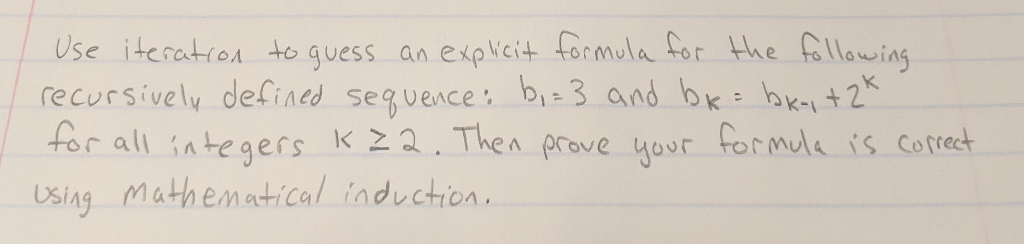 Use iteration to guess an explicit formula for the following
recursively defined sequence: b₁=3 and bₖ = bₖ₋₁ + 2ᵏ
for all integers K ≥ 2. Then prove your formula is correct
using mathematical induction.